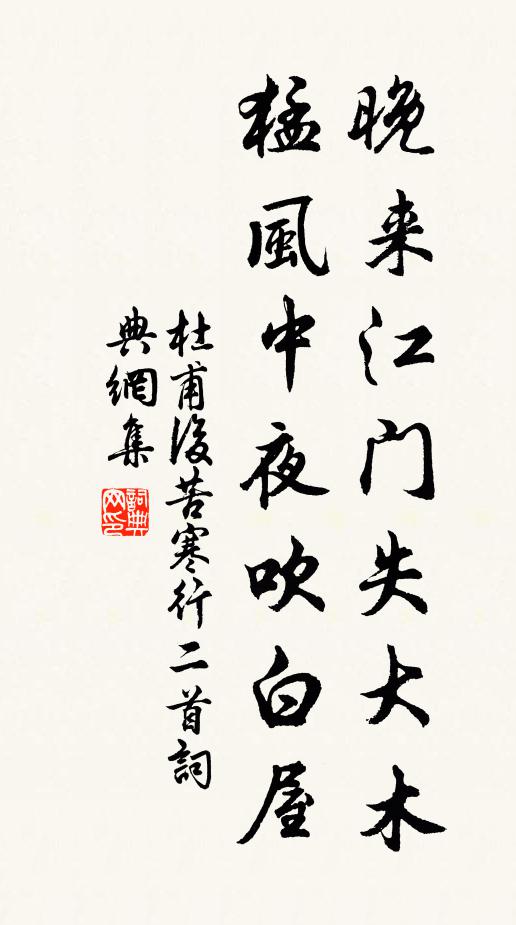 晚来江门失大木
猛風中夜吹白屋
杜甫後苦寒行二首詞
典網集
詞典网印